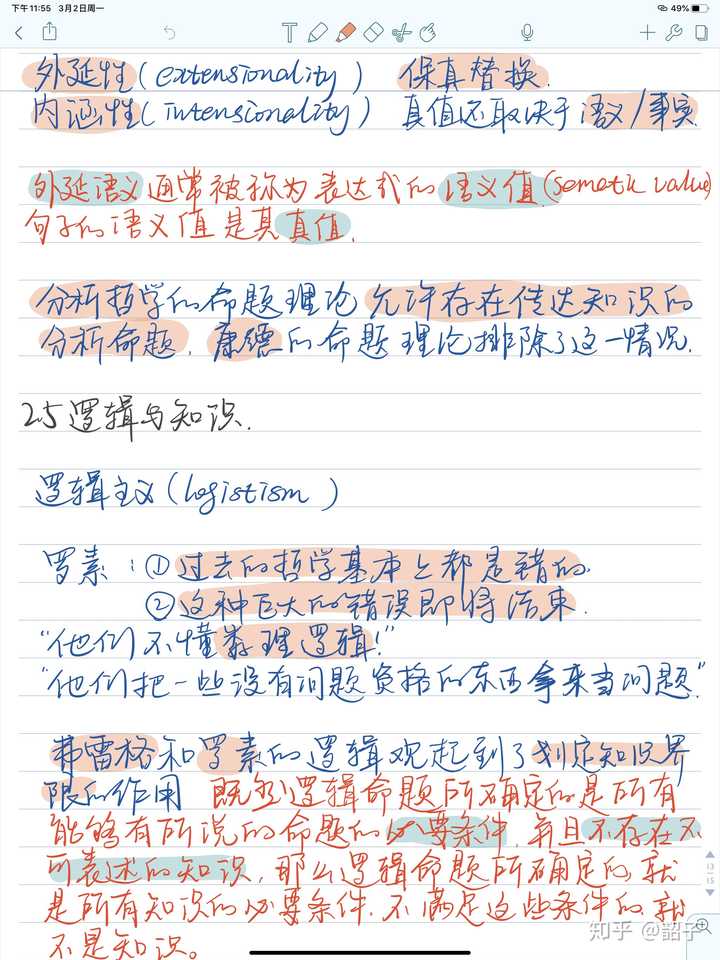 下午11:55 3月2日周一
49%
外延性(extensionality) 保真替换.
内涵性(intensionality) 真值还取决于语义/事实.
外延语义通常被称为表达式的语义值(sematic value)
句子的语义值是其真值.
分析哲学的命题理论允许存在传达知识的
分析命题. 康德的命题理论排除了这一情况.
2.5逻辑与知识.
逻辑主义(logistism)
罗素:①过去的哲学基本上都是错的.
②这种巨大的错误即将结束.
“他们不懂数理逻辑!”
“他们把一些没有问题资格的东西拿来当问题”
弗雷格和罗素的逻辑观起到了划定知识界
限的作用 既然逻辑命题所确定的是所有
能够有所说的命题的必要条件,并且不存在不
可表述的知识,那么逻辑命题所确定的,就
是所有知识的必要条件.不满足这些条件的,就
不是知识。
知乎 @韶子